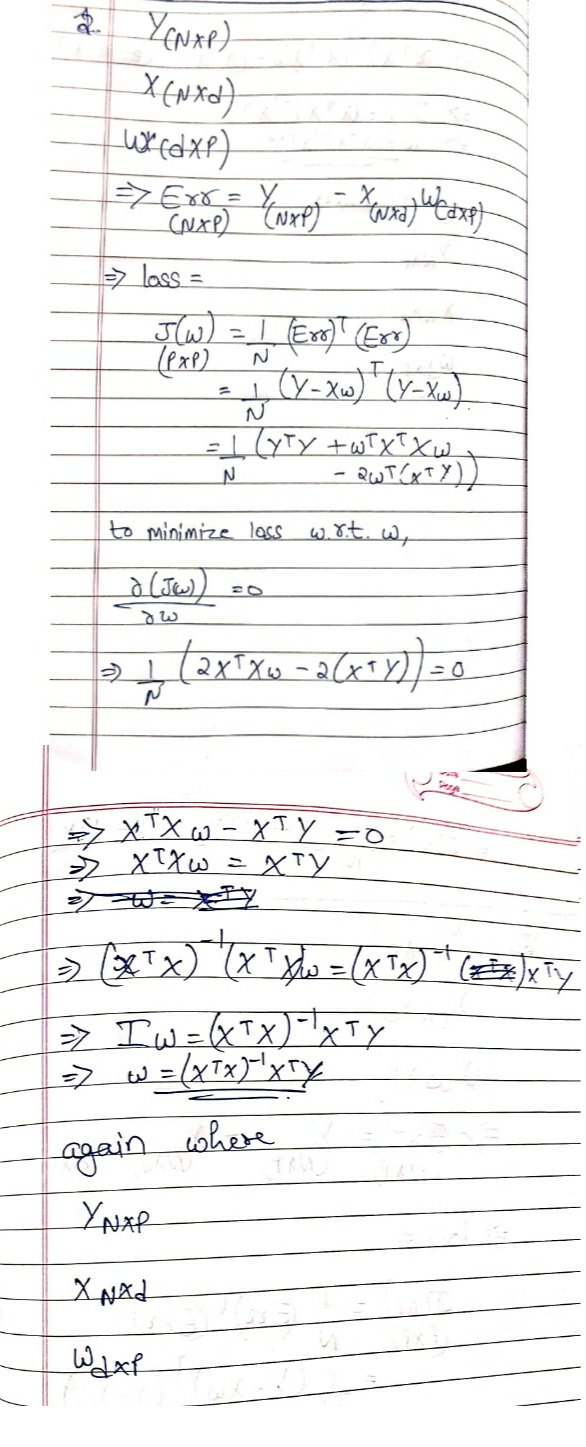 2. Y(N×P)
X(N×d)
W(d×P)
⇒ Err = Y - X W
(N×P) (N×P) (N×d) (d×P)
⇒ loss =
J(w) = 1/N (Err)ᵀ (Err)
(P×P)
= 1/N (Y-Xw)ᵀ (Y-Xw)
= 1/N (YᵀY + wᵀXᵀXw
- 2wᵀ(XᵀY))
to minimize loss w.r.t. w,
∂(J(w))/∂w = 0
⇒ 1/N (2XᵀXw - 2(XᵀY)) = 0
⇒ XᵀXw - XᵀY = 0
⇒ XᵀXw = XᵀY
⇒ w = XᵀY
⇒ (XᵀX)⁻¹(XᵀX)w = (XᵀX)⁻¹ (XᵀX)XᵀY
⇒ Iw = (XᵀX)⁻¹XᵀY
⇒ w = (XᵀX)⁻¹XᵀY
again where
Y N×P
X N×d
W d×P